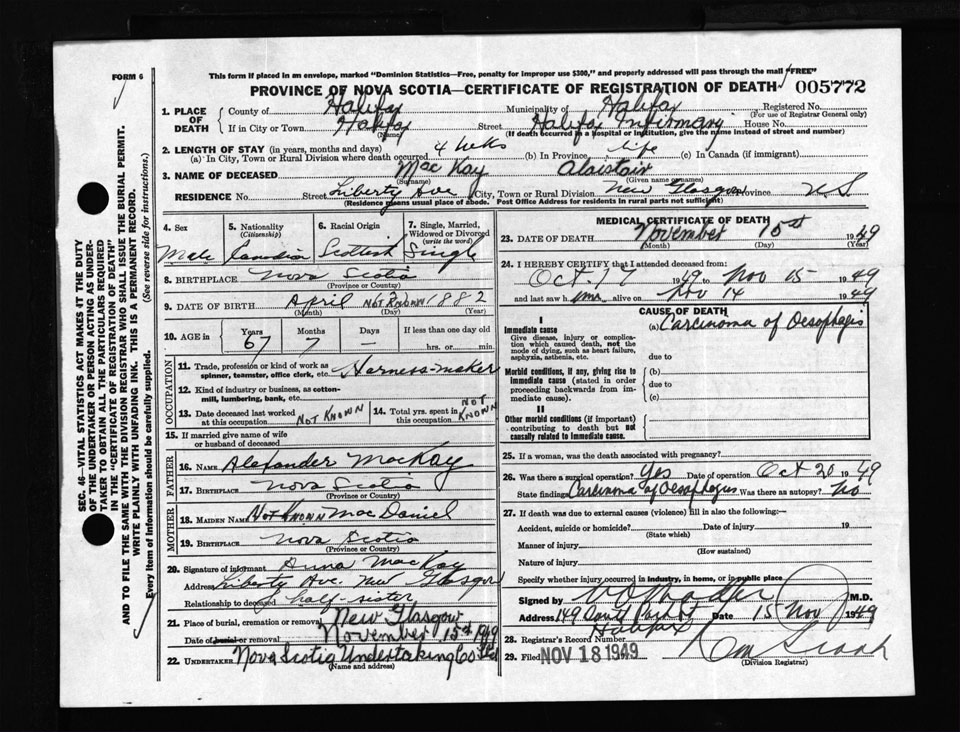 This form if placed in an envelope, marked "Dominion Statistics—Free, penalty for improper use $300," and properly addressed will pass through the mail "FREE"
FORM 6
PROVINCE OF NOVA SCOTIA—CERTIFICATE OF REGISTRATION OF DEATH 005772
1. PLACE OF DEATH
County of Halifax Municipality of Halifax Registered No.
(For use of Registrar General only)
If in City or Town Halifax Street Halifax Infirmary House No.
(Name) (If death occurred in a hospital or institution, give the name instead of street and number)
2. LENGTH OF STAY (in years, months and days)
(a) In City, Town or Rural Division where death occurred 4 wks (b) In Province life (c) In Canada (if immigrant)
3. NAME OF DECEASED Mac Kay Alaistair
(Surname) (Given name or names)
RESIDENCE No. Street Liberty Ave City, Town or Rural Division New Glasgow Province N S
(Residence means usual place of abode. Post Office Address for residents in rural parts not sufficient)
4. Sex Male
5. Nationality (Citizenship) Canadian
6. Racial Origin Scottish
7. Single, Married, Widowed or Divorced (write the word) Single
8. BIRTHPLACE Nova Scotia
(Province or Country)
9. DATE OF BIRTH April NOT KNOWN 1882
(Month) (Day) (Year)
10. AGE in Years Months Days If less than one day old
67 7 — hrs. or min.
OCCUPATION
11. Trade, profession or kind of work as spinner, teamster, office clerk, etc. Harness-maker
12. Kind of industry or business, as cotton-mill, lumbering, bank, etc.
13. Date deceased last worked at this occupation NOT KNOWN
14. Total yrs. spent in this occupation NOT KNOWN
15. If married give name of wife or husband of deceased
FATHER
16. NAME Alexander MacKay
17. BIRTHPLACE Nova Scotia
(Province or Country)
MOTHER
18. MAIDEN NAME Not Known MacDaniel
19. BIRTHPLACE Nova Scotia
(Province or Country)
20. Signature of informant Anna MacKay
Address Liberty Ave. New Glasgow
Relationship to deceased half-sister
21. Place of burial, cremation or removal New Glasgow
Date of burial or removal November 15th 1949
22. UNDERTAKER Nova Scotia Undertaking Co Ltd
(Name and address)
MEDICAL CERTIFICATE OF DEATH
23. DATE OF DEATH November 15th 1949
(Month) (Day) (Year)
24. I HEREBY CERTIFY that I attended deceased from
Oct. 17 1949 to Nov 15 1949
and last saw h im alive on Nov 14 1949
CAUSE OF DEATH
I
Immediate cause
Give disease, injury or complication which caused death, not the mode of dying, such as heart failure, asphyxia, asthenia, etc.
(a) Carcinoma of Oesophagis
due to
Morbid conditions, if any, giving rise to immediate cause (stated in order proceeding backwards from immediate cause).
(b)
due to
(c)
II
Other morbid conditions (if important) contributing to death but not causally related to immediate cause.
25. If a woman, was the death associated with pregnancy?
26. Was there a surgical operation? Yes Date of operation Oct 20 1949
State findings Carcinoma of Oesophagus Was there an autopsy? No
27. If death was due to external causes (violence) fill in also the following:—
Accident, suicide or homicide? Date of injury 19
(State which)
Manner of injury
(How sustained)
Nature of injury
Specify whether injury occurred in industry, in home, or in public place
Signed by M.D.
Address 149 Park St Date 15 Nov 1949
Halifax
28. Registrar's Record Number
29. Filed NOV 18 1949
(Division Registrar)
SEC. 46—VITAL STATISTICS ACT MAKES IT THE DUTY
OF THE UNDERTAKER OR PERSON ACTING AS UNDER-
TAKER TO OBTAIN ALL THE PARTICULARS REQUIRED
IN THE "CERTIFICATE OF REGISTRATION OF DEATH"
AND TO FILE THE SAME WITH THE DIVISION REGISTRAR WHO SHALL ISSUE THE BURIAL PERMIT.
WRITE PLAINLY WITH UNFADING INK. THIS IS A PERMANENT RECORD.
Every item of information should be carefully supplied. (See reverse side for instructions.)